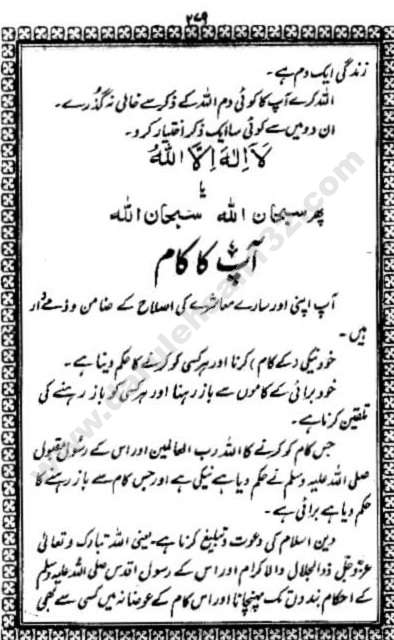 ۲۷۹
زندگی ایک دم ہے۔
اللہ کرے آپ کا کوئی دم اللہ کے ذکر سے خالی نہ گذرے۔
ان دو میں سے کوئی سا ایک ذکر اختیار کرو۔
لَا اِلٰہَ اِلَّا اللّٰہُ
یا
پھر سبحان اللہ سبحان اللہ
آپ کا کام
آپ اپنی اور سارے معاشرے کی اصلاح کے ضامن و ذمے دار
ہیں۔
خود نیکی (کے کام) کرنا اور ہر کسی کو کرنے کا حکم دینا ہے۔
خود برائی کے کاموں سے باز رہنا اور ہر کسی کو باز رہنے کی
تلقین کرنا ہے۔
جس کام کو کرنے کا اللہ رب العالمین اور اس کے رسول مقبول
صلی اللہ علیہ وسلم نے حکم دیا ہے نیکی ہے اور جس کام سے باز رہنے کا
حکم دیا ہے برائی ہے۔
دین اسلام کی دعوت و تبلیغ کرنا ہے۔ یعنی اللہ تبارک و تعالیٰ
عزوجل ذوالجلال والاکرام اور اس کے رسول اقدس صلی اللہ علیہ وسلم
کے احکام بندوں تک پہنچانا اور اس کام کے عوضانہ میں کسی سے کبھی